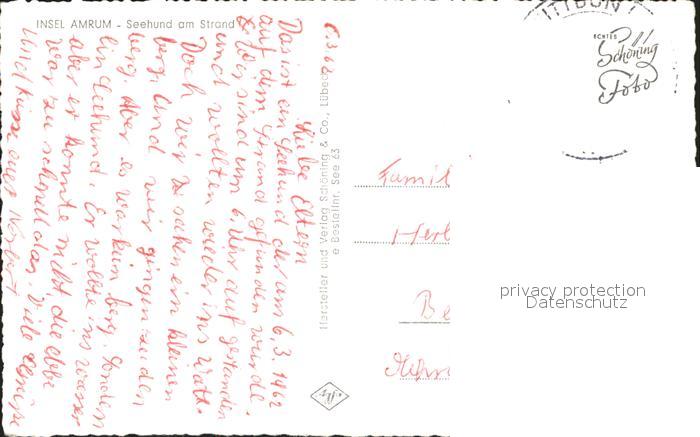 INSEL AMRUM - Seehund am Strand
6.3.62
Liebe Eltern
Das ist ein Seehund der am 6.3.1962
auf dem Strand gefunden wurde.
wir sind um 6 Uhr auf gestanden
und wollten wieder ins Watt.
Doch wir sahen ein kleinen
berg. Und wir gingen zu den
berg. Aber es war kein berg. Sondern
ein Seehund. Er wollte ins wasser
aber er konnte nicht, die ebbe
war zu schnell da. Viele Grüße
und Küsse euer Norbert
Hersteller und Verlag Schöning & Co., Lübeck
Bestellnr. See 63
ECHTES
Schöning
Foto
Famil
Herb
Be
privacy protection
Datenschutz